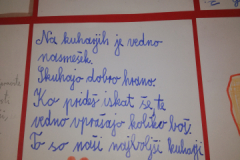 Na kuharjih je vedno
nasmešek.
Skuhajo dobro hrano.
Ko prideš iskat še te
vedno vprašajo koliko boš.
To so naši najboljši kuharji.